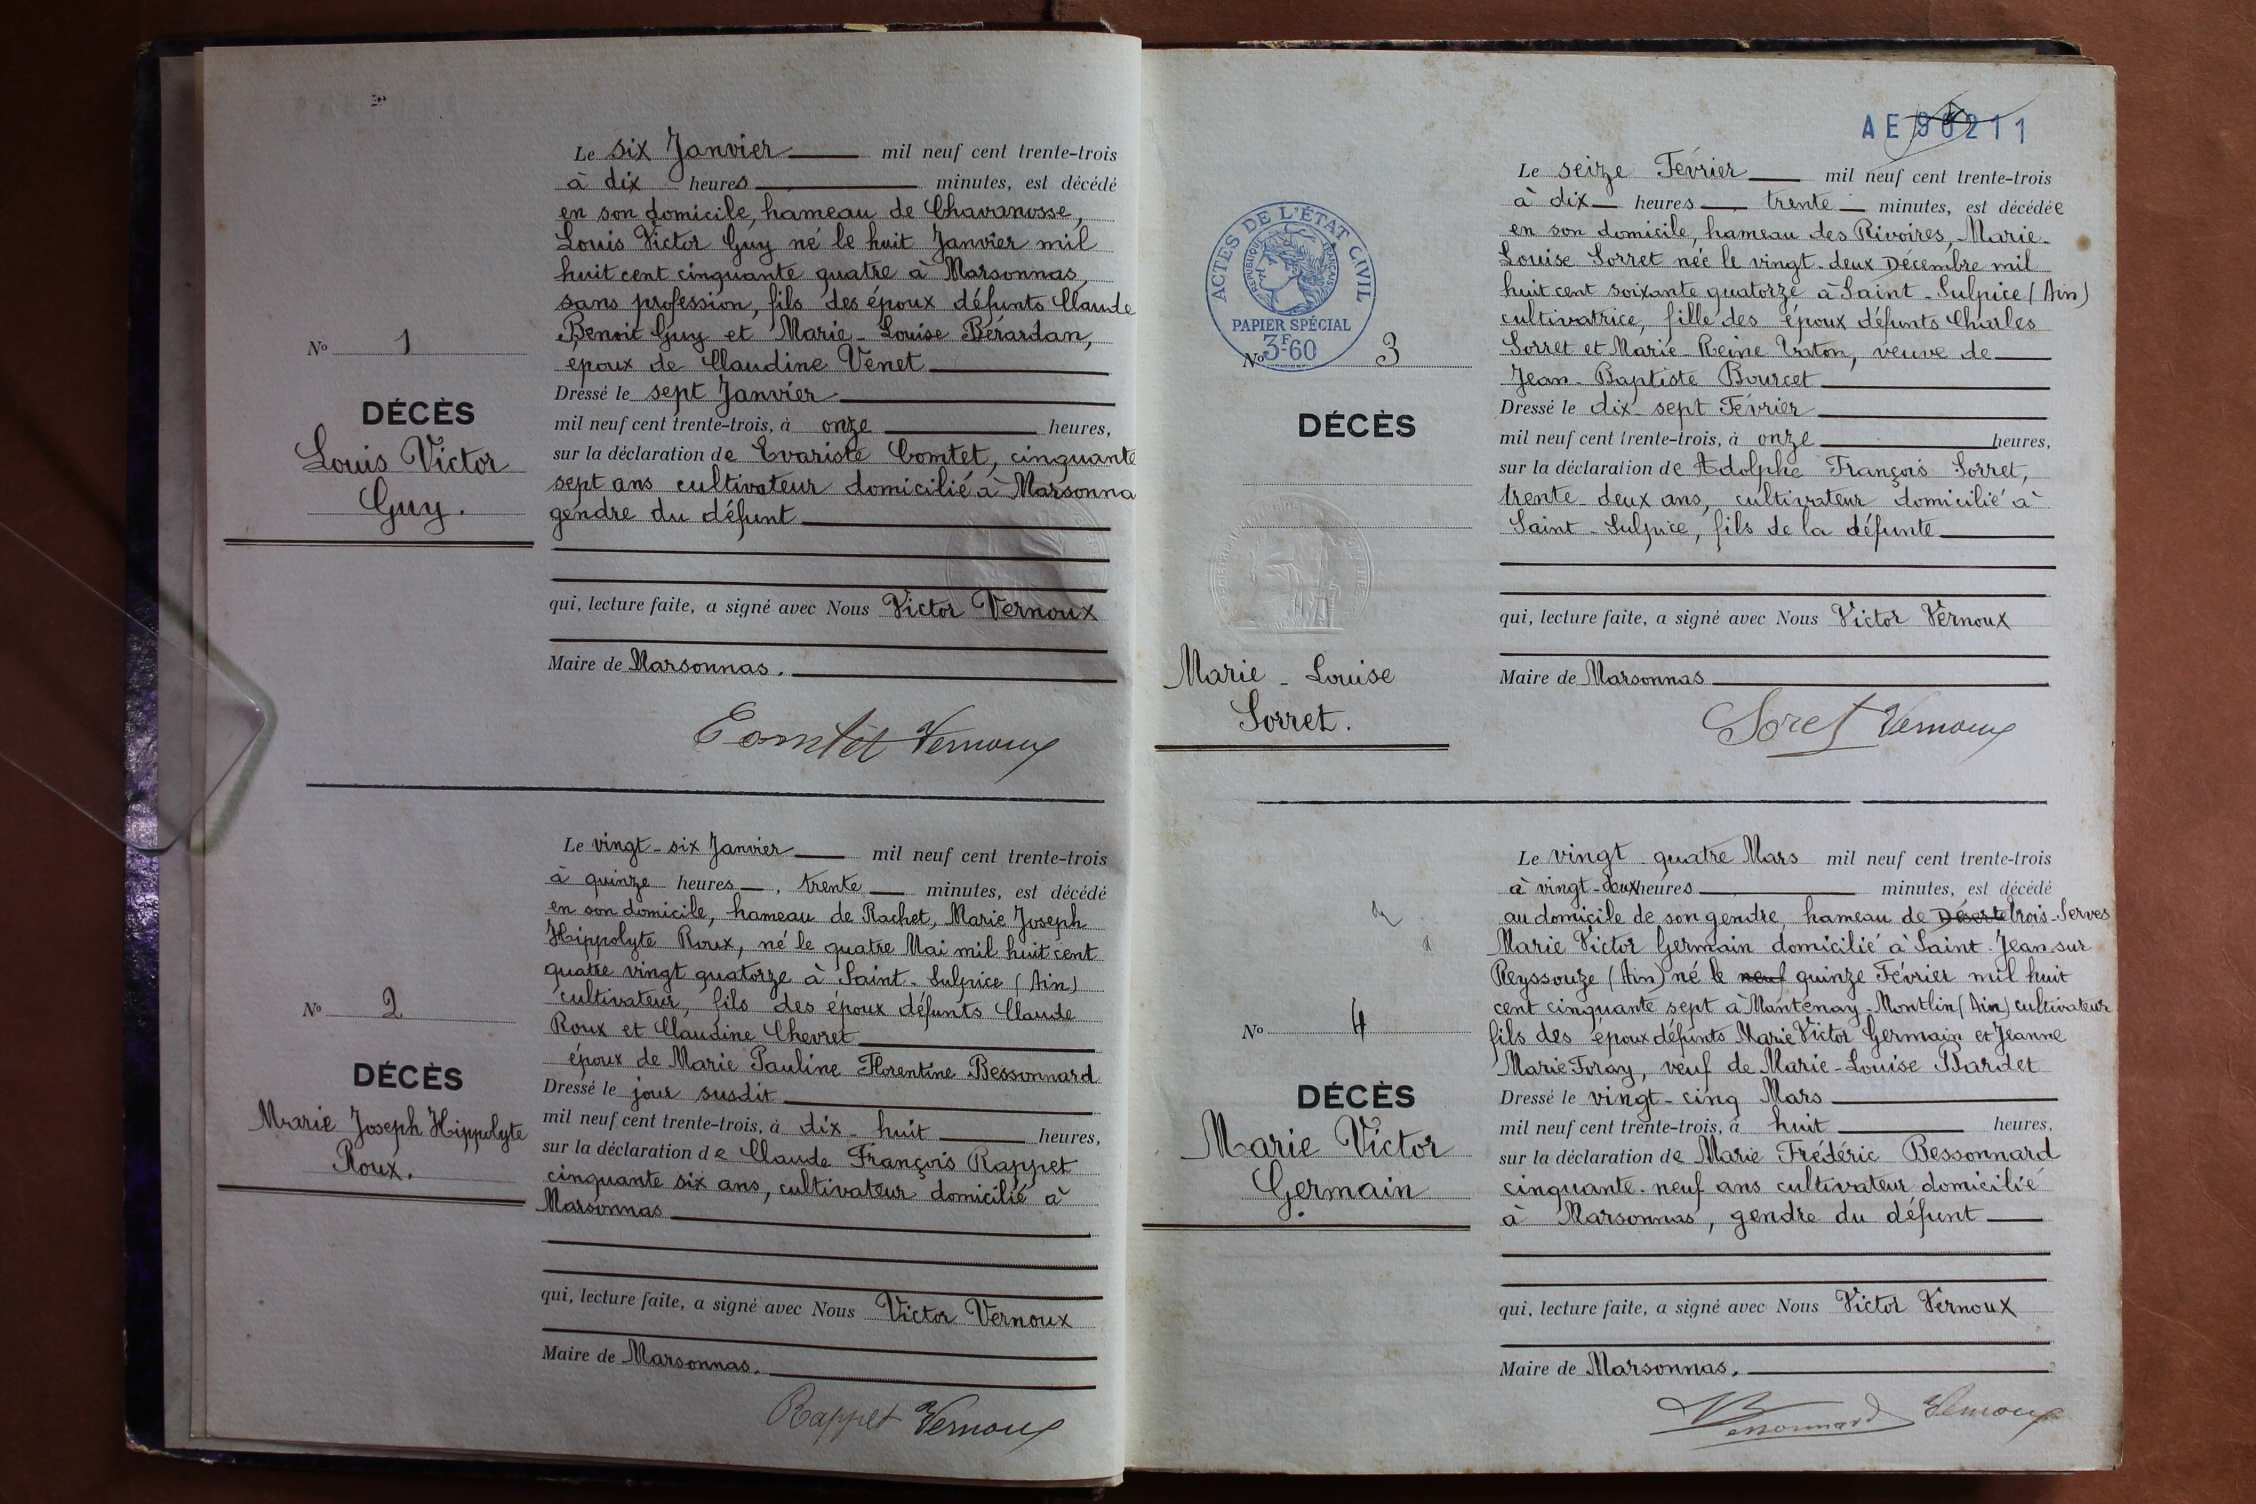 Le six Janvier mil neuf cent trente-trois
à dix heures minutes, est décédé
en son domicile, hameau de Chavanosse,
Louis Victor Guy né le huit Janvier mil
huit cent cinquante quatre à Marsonnas,
sans profession, fils des époux défunts Claude
Benoit Guy et Marie-Louise Bérardan,
époux de Claudine Venet
Nº 1
DÉCÈS
Louis Victor
Guy.
Dressé le sept Janvier
mil neuf cent trente-trois, à onze heures,
sur la déclaration de Evariste Comtet, cinquante
sept ans cultivateur domicilié à Marsonna
gendre du défunt
qui, lecture faite, a signé avec Nous Victor Vernoux
Maire de Marsonnas.
Comtet Vernoux
Le vingt-six Janvier mil neuf cent trente-trois
à quinze heures, trente minutes, est décédé
en son domicile, hameau de Rachet, Marie Joseph
Hippolyte Roux, né le quatre Mai mil huit cent
quatre vingt quatorze à Saint-Sulpice (Ain)
cultivateur, fils des époux défunts Claude
Roux et Claudine Chevret
époux de Marie Pauline Florentine Bessonnard
Nº 2
DÉCÈS
Marie Joseph Hippolyte
Roux.
Dressé le jour susdit
mil neuf cent trente-trois, à dix-huit heures,
sur la déclaration de Claude François Rappet
cinquante six ans, cultivateur domicilié à
Marsonnas
qui, lecture faite, a signé avec Nous Victor Vernoux
Maire de Marsonnas.
Rappet Vernoux
AE 90211
ACTES DE L'ÉTAT CIVIL
RÉPUBLIQUE FRANÇAISE
PAPIER SPÉCIAL
3F60
Le seize Février mil neuf cent trente-trois
à dix heures trente minutes, est décédée
en son domicile, hameau des Rivoires, Marie-
Louise Sorret née le vingt-deux Décembre mil
huit cent soixante quatorze à Saint-Sulpice (Ain)
cultivatrice, fille des époux défunts Charles
Sorret et Marie-Reine, veuve de
Jean-Baptiste Bourcet
Nº 3
DÉCÈS
Marie-Louise
Sorret.
Dressé le dix-sept Février
mil neuf cent trente-trois, à onze heures,
sur la déclaration de Adolphe François Sorret,
trente-deux ans, cultivateur domicilié à
Saint-Sulpice, fils de la défunte
qui, lecture faite, a signé avec Nous Victor Vernoux
Maire de Marsonnas
Soret Vernoux
Le vingt-quatre Mars mil neuf cent trente-trois
à vingt-deux heures minutes, est décédé
au domicile de son gendre, hameau de Déserte trois-Serves
Marie Victor Germain domicilié à Saint-Jean-sur
Reyssouze (Ain) né le neuf quinze Février mil huit
cent cinquante sept à Mantenay-Montlin (Ain) cultivateur
fils des époux défunts Marie Victor Germain et Jeanne
Marie Foray, veuf de Marie-Louise Bardet
Nº 4
DÉCÈS
Marie Victor
Germain
Dressé le vingt-cinq Mars
mil neuf cent trente-trois, à huit heures,
sur la déclaration de Marie Frédéric Bessonnard
cinquante-neuf ans cultivateur domicilié
à Marsonnas, gendre du défunt
qui, lecture faite, a signé avec Nous Victor Vernoux
Maire de Marsonnas.
Bessonnard Vernoux